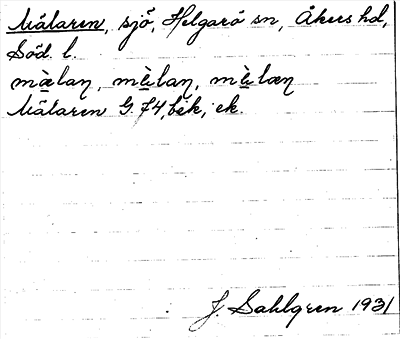 Mälaren, sjö, Helgarö sn, Åkers hd,
Söd. l.
mὲ̱laṇ, mὲ̱laṇ, mὲ̱læṇ
Mälaren G. 74, bek, ek.
J. Sahlgren 1931